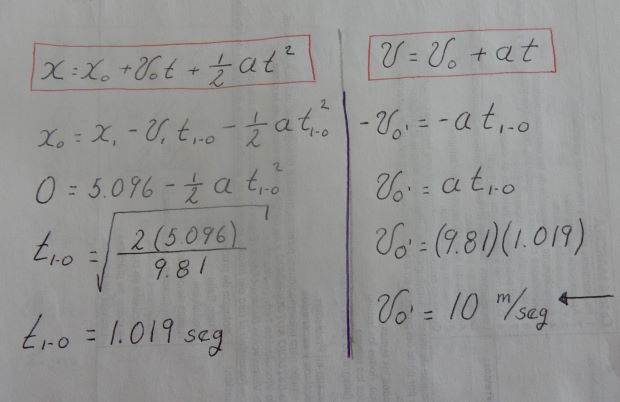 x = x₀ + v₀t + ½ at²
x₀ = x₁ - v₁ t₁₋₀ - ½ at₁₋₀²
0 = 5.096 - ½ a t₁₋₀²
t₁₋₀ = √(2(5.096)/9.81)
t₁₋₀ = 1.019 seg
v = v₀ + at
-v₀' = -a t₁₋₀
v₀' = a t₁₋₀
v₀' = (9.81)(1.019)
v₀' = 10 m/seg ←